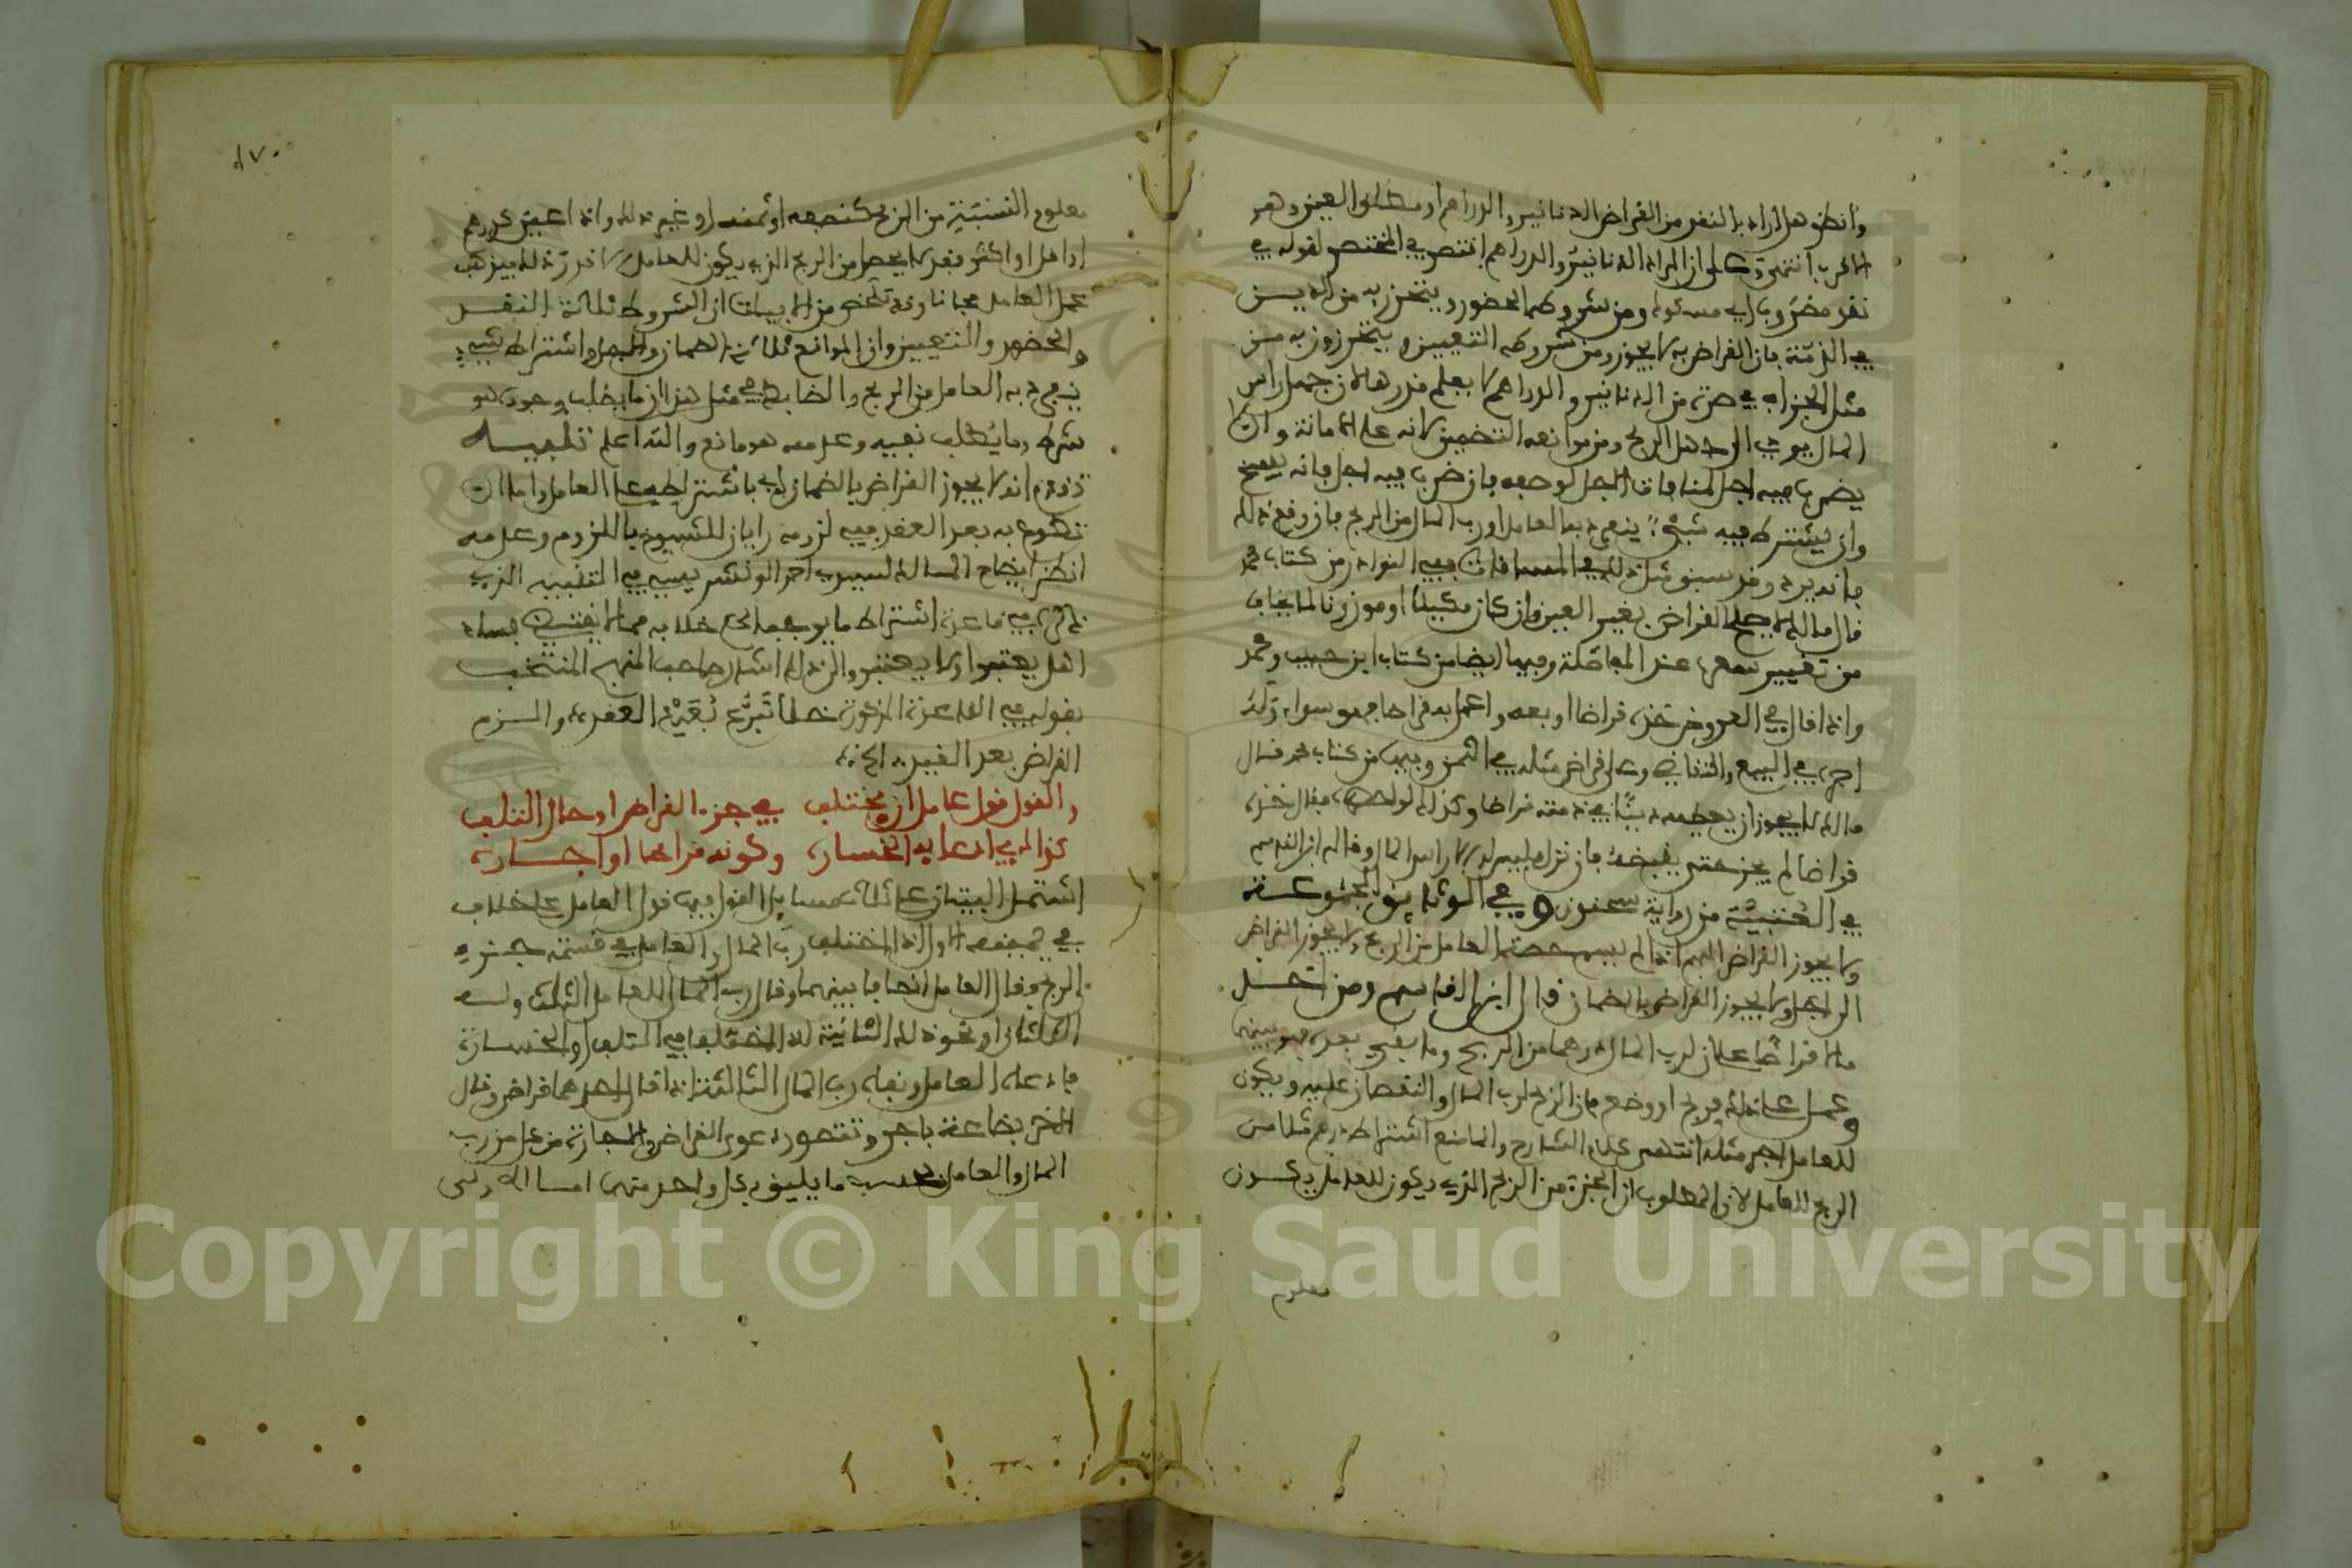 وانظر هل اراد بالنقد من القراض الدنانير والدراهم او مطلق العين وهو
الاقرب انتهى وعلى ان المراد الدنانير والدراهم اقتصر في المختصر لقوله في
نقد مضروب اي مسكوك ومن شروطها الحضور ويتحرز به من الدين
في الذمة فان القراض به لا يجوز ومن شروطه التعيين ويتحرزون به من
مثل الجزاف في صرة من الدنانير والدراهم لا يعلم قدرها لان جهل راس
المال يودي الى جهل الربح ومن موانعه التضمين لانه على الامانة وان لا
يضرب فيه اجل لمنافات الاجل لوضعه فان ضرب فيه اجل فانه يفسخ
وان يشترط فيه شيئ ينفرد به العامل او رب المال من الربح فان وقع ذلك
فانه يرد وقد سبق مثل ذلك في المساقات ففي النوادر من كتاب محمد
قال مالك لا يصلح القراض بغير العين وان كان مكيلا او موزونا لما يخاف
من تغيير سعره عند المفاصلة وفيها ايضا من كتاب ابن حبيب ومحمد
واذا قال في العروض خذه قراضا او بعه واعمل به قراضا فهو سواء وله
اجره في البيع والتقاضي وعلى قراض مثله في الثمن وفيها من كتاب محمد قال
مالك لا يجوز ان يعطيه دينا في ذمته قراضا وكذلك لو احضره فقال خذه
قراضا لم يجز حتى يقبضه فان نزل فليس له الا راس المال وقاله ابن القاسم
في العتبية من رواية سحنون وفي الوثائق المجموعة
ولا يجوز القراض المبهم اذا لم يسم حصة العامل من الربح ولا يجوز القراض
الى اجل ولا يجوز القراض بالضمان قال ابن القاسم ومن اخذ
مالا قراضا على ان لرب المال درهما من الربح وما بقي بعده فهو بينهما
وعمل على ذلك فربح او وضع فان الربح لرب المال والنقصان عليه ويكون
للعامل اجر مثله انتهى على الشارح وانما منع اشتراط درهم مثلا من
الربح للعامل لان المطلوب ان الجزء من الربح الذي يكون للعامل يكون
معلوم
١٧٠
معلوم النسبة من الربح كنصفه او ثمنه او غير ذلك واذا عين كدرهم
او اقل او اكثر فقد لا يحصل من الربح الذي يكون للعامل الا قدر ذلك فيذهب
عمل العامل مجانا وقد تلخص من الابيات ان الشروط ثلاثة النقد
والحضور والتعيين وان الموانع ثلاثة الضمان والاجل واشتراط شيء
ينفرد به العامل من الربح والضابط في مثل هذا ان ما يطلب وجوده هو
شرط وما يطلب نفيه وعدمه هو مانع والله اعلم تنبيه
قد تقدم انه لا يجوز القراض بالضمان اي باشتراطه على العامل واما ان
تطوع به بعد العقد ففي لزومه رايان للشيوخ باللزوم وعدمه
انظر ايضاح المسالك لسيدي احمد الونشريسي في التنبيه الذي
ذكره في قاعدة اشتراط ما يوجب الحكم خلافه مما لا يقتضي فسادا
هل يعتبر او لا يعتبر والى ذلك اشار صاحب المنهج المنتخب
بقوله في القاعدة المذكورة خلا تبرع بعيد العقد والزم
القراض بعد القبض الخ
والقول قول عامل ان يختلف في جزء القراض او حال التلف
كذاك في ادعائه الخسارة وكونه قراضا او اجاره
اشتمل البيتان على ثلاث مسائل القول فيها قول العامل على خلاف
في بعضها الاولى اذا اختلف رب المال والعامل في قسمة جزء
الربح فقال العامل انصافا بيننا وقال رب المال للعامل الثلث ولي
الثلثان او نحو ذلك الثانية اذا اختلفا في التلف او الخسارة
فادعاه العامل ونفاه رب المال الثالثة اذا قال احدهما قراض وقال
الاخر بضاعة باجر وتتصور دعوى القراض والاجارة من كل من رب
المال والعامل بحسب ما يليق بكل واحد منهما اما المسالة